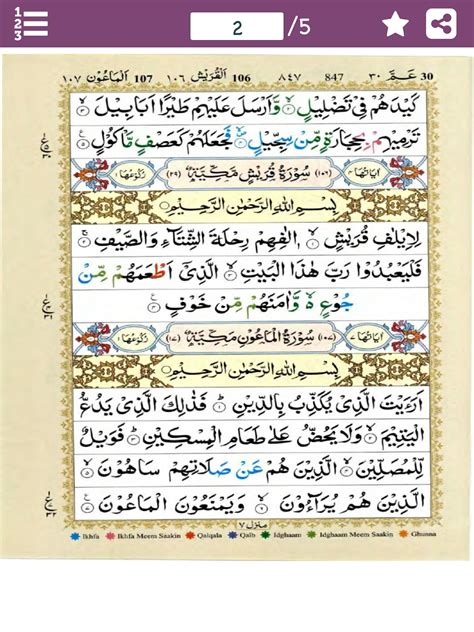 1
2
3
2 /5
١٠٧ اَلْمَاعُوْن 107 اَلْقُرَيْش ١٠٦ 106 ٨٤٧ 847 عَمَّ ٣٠ 30
كَيْدَهُمْ فِيْ تَضْلِيْلٍ ۙ وَّاَرْسَلَ عَلَيْهِمْ طَيْرًا اَبَابِيْلَ ۙ
تَرْمِيْهِمْ بِحِجَارَةٍ مِّنْ سِجِّيْلٍ ۙ فَجَعَلَهُمْ كَعَصْفٍ مَّاْكُوْلٍ
اٰيَاتُهَا (١٠٦) سُوْرَةُ قُرَيْشٍ مَكِّيَّةٌ (٢٩) رُكُوْعُهَا
بِسْمِ اللّٰهِ الرَّحْمٰنِ الرَّحِيْمِ
لِاِيْلٰفِ قُرَيْشٍ ۙ اٖلٰفِهِمْ رِحْلَةَ الشِّتَآءِ وَالصَّيْفِ
فَلْيَعْبُدُوْا رَبَّ هٰذَا الْبَيْتِ ۙ الَّذِيْٓ اَطْعَمَهُمْ مِّنْ
جُوْعٍ ۙ وَّاٰمَنَهُمْ مِّنْ خَوْفٍ
اٰيَاتُهَا (١٠٧) سُوْرَةُ الْمَاعُوْنَ مَكِّيَّةٌ (١٧) رُكُوْعُهَا
بِسْمِ اللّٰهِ الرَّحْمٰنِ الرَّحِيْمِ
اَرَءَيْتَ الَّذِيْ يُكَذِّبُ بِالدِّيْنِ ؕ فَذٰلِكَ الَّذِيْ يَدُعُّ
الْيَتِيْمَ ۙ وَلَا يَحُضُّ عَلٰى طَعَامِ الْمِسْكِيْنِ ؕ فَوَيْلٌ
لِّلْمُصَلِّيْنَ ۙ الَّذِيْنَ هُمْ عَنْ صَلَاتِهِمْ سَاهُوْنَ ۙ
الَّذِيْنَ هُمْ يُرَآءُوْنَ ۙ وَيَمْنَعُوْنَ الْمَاعُوْنَ
منزل ٧
Ikhfa Ikhfa Meem Saakin Qalqala Qalb Idghaam Idghaam Meem Saakin Ghunna